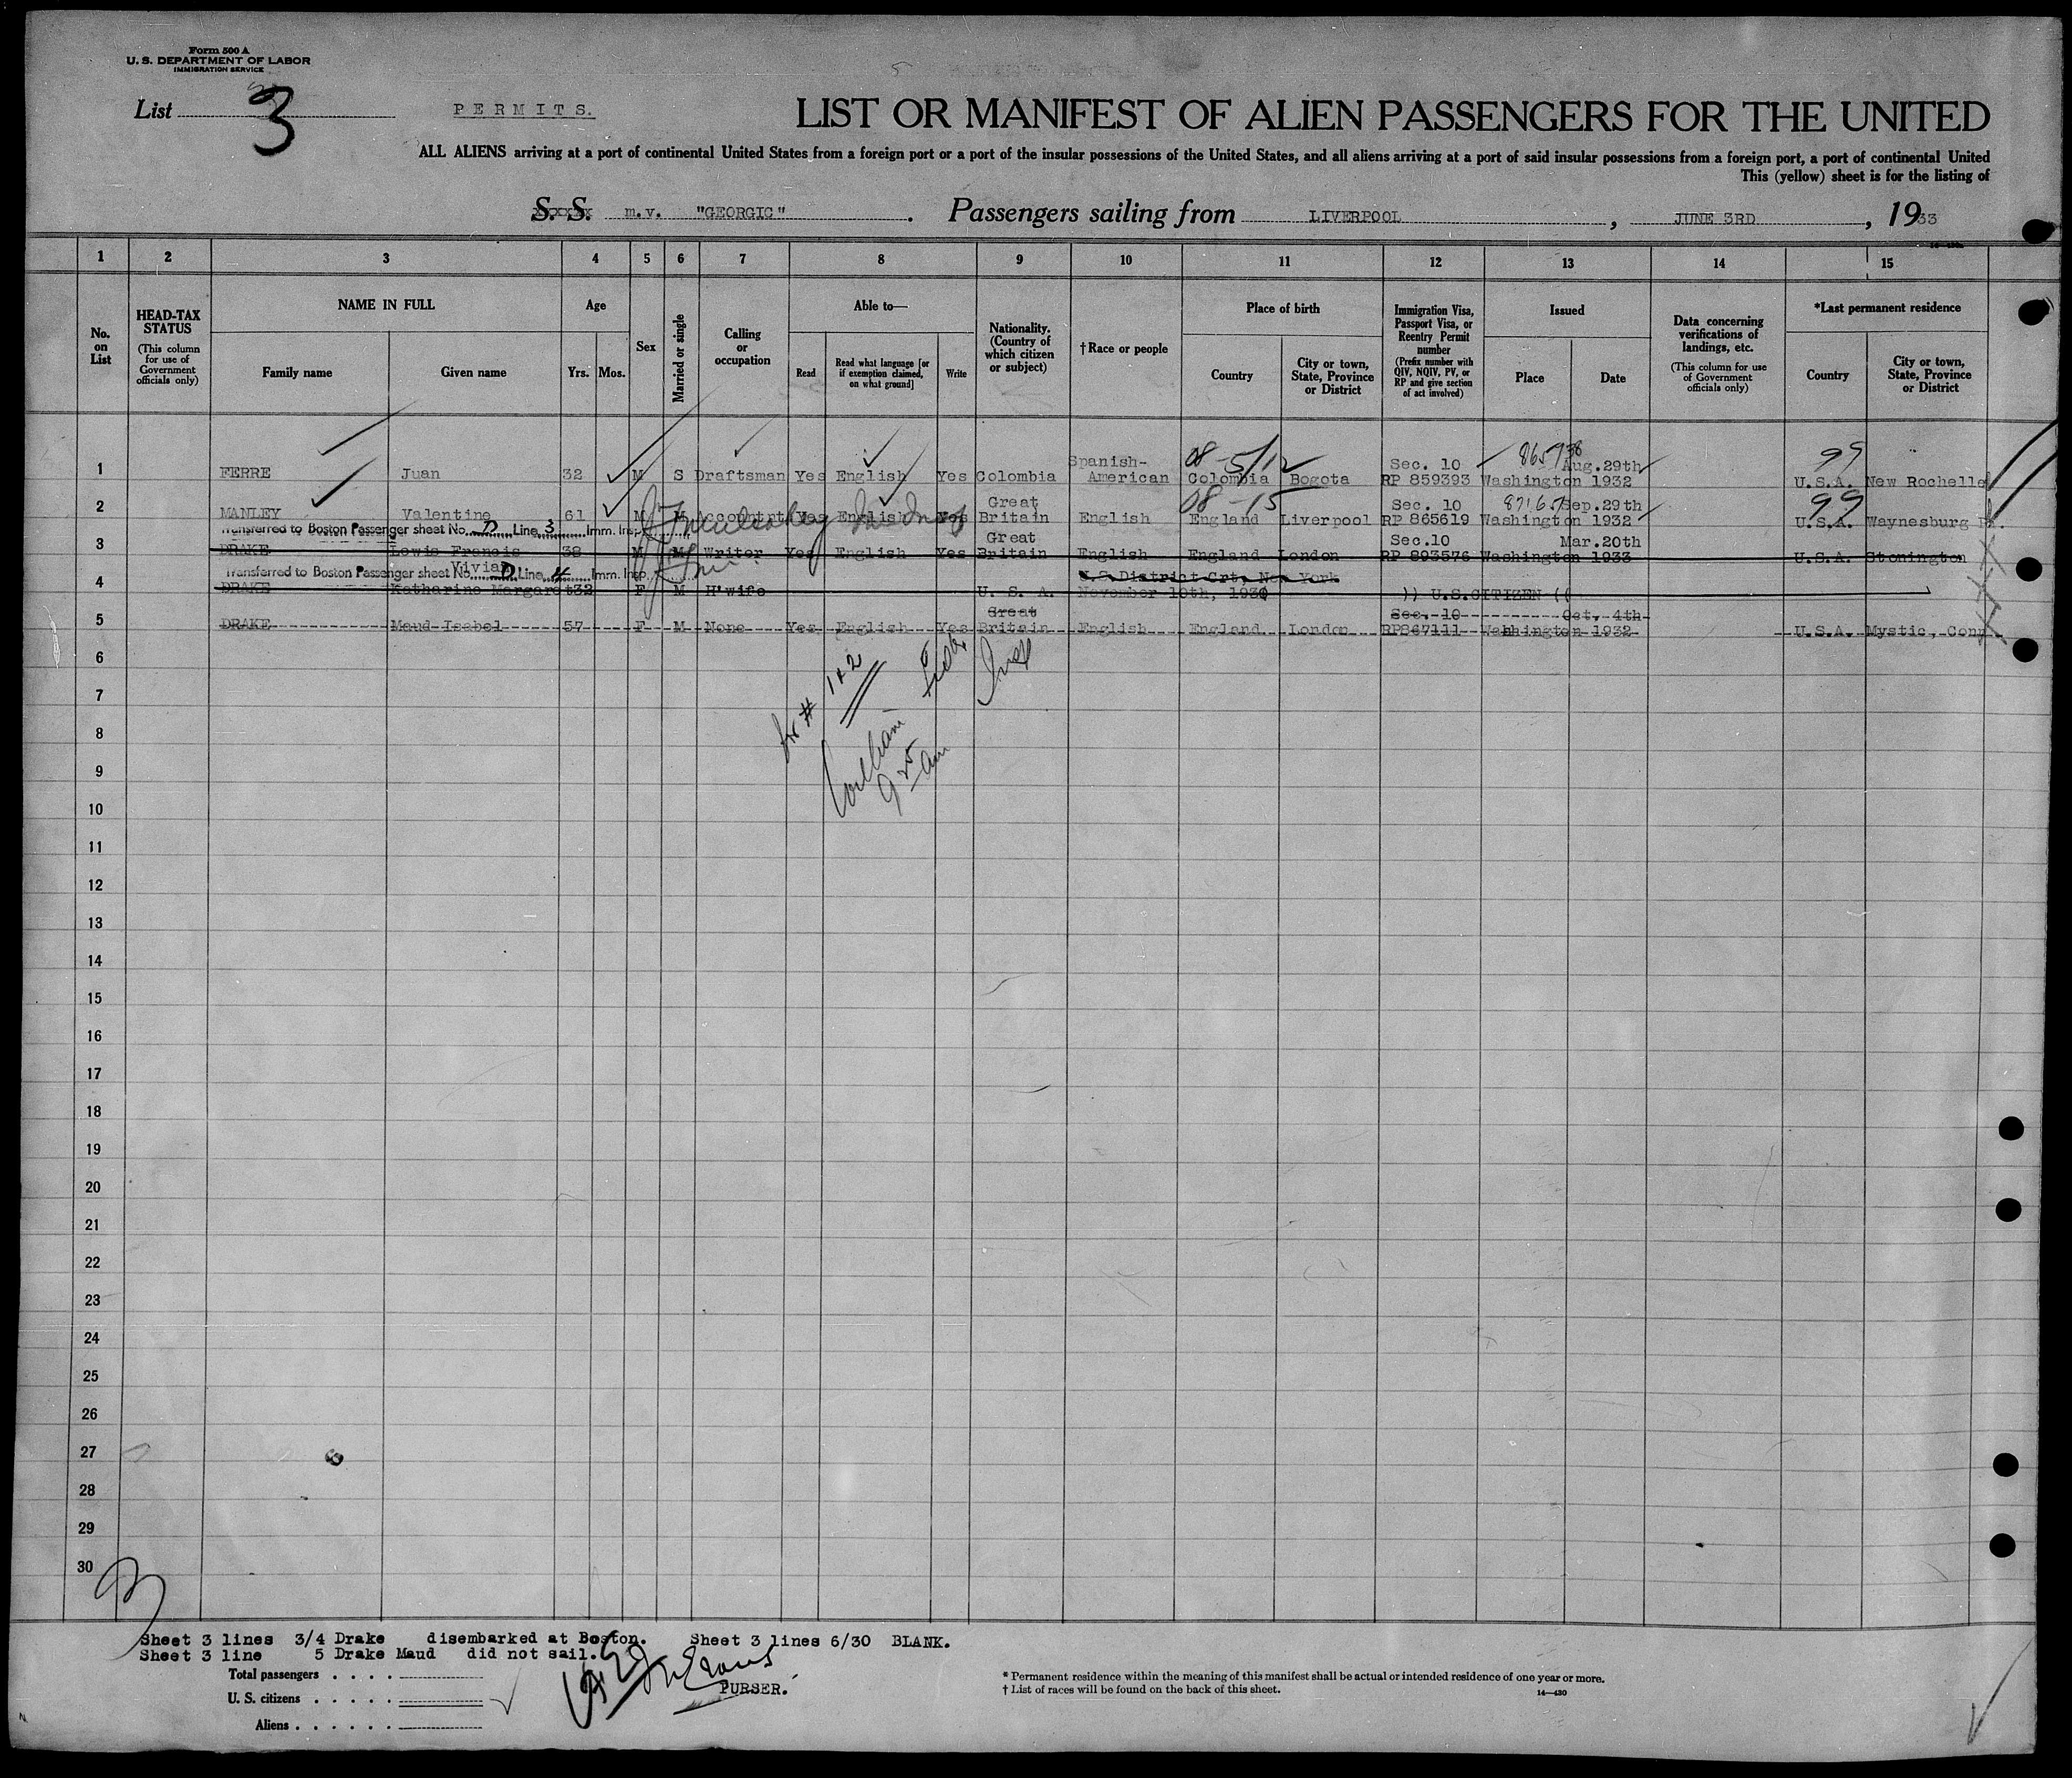 Form 500 A
U. S. DEPARTMENT OF LABOR
IMMIGRATION SERVICE
List 3
PERMITS.
LIST OR MANIFEST OF ALIEN PASSENGERS FOR THE UNITED
ALL ALIENS arriving at a port of continental United States from a foreign port or a port of the insular possessions of the United States, and all aliens arriving at a port of said insular possessions from a foreign port, a port of continental United
This (yellow) sheet is for the listing of
S. S. m.v. "GEORGIC" . Passengers sailing from LIVERPOOL , JUNE 3RD , 1933
1 2 3 4 5 6 7 8 9 10 11 12 13 14 15
No. on List
HEAD-TAX STATUS
(This column for use of Government officials only)
NAME IN FULL
Family name Given name
Age
Yrs. Mos.
Sex
Married or single
Calling or occupation
Able to—
Read
Read what language [or if exemption claimed, on what ground]
Write
Nationality. (Country of which citizen or subject)
†Race or people
Place of birth
Country
City or town, State, Province or District
Immigration Visa, Passport Visa, or Reentry Permit number
(Prefix number with QIV, NQIV, PV, or RP and give section of act involved)
Issued
Place Date
Data concerning verifications of landings, etc.
(This column for use of Government officials only)
*Last permanent residence
Country
City or town, State, Province or District
08-5/12 99
Spanish- Sec. 10 Aug.29th
1 FERRE Juan 32 M S Draftsman Yes English Yes Colombia American Colombia Bogota RP 859393 Washington 1932 U.S.A. New Rochelle
08-15 99
Great Sec. 10 Sep.29th
2 MANLEY Valentine 61 M M Accountant Yes English Yes Britain English England Liverpool RP 865619 Washington 1932 U.S.A. Waynesburg Pa.
Transferred to Boston Passenger sheet No. D Line 3 Imm. Insp.
Great Sec.10 Mar.20th
3 DRAKE Lewis Francis 38 M M Writer Yes English Yes Britain English England London RP 893576 Washington 1933 U.S.A. Stonington
Transferred to Boston Passenger sheet No. D Line 4 Imm. Insp.
Vivian U.S.District Crt, New York
4 DRAKE Katharine Margaret 32 F M H'wife U. S. A. November 10th, 1930 )) U.S.CITIZEN ((
Great Sec. 10 Oct. 4th
5 DRAKE Maud Isabel 57 F M None Yes English Yes Britain English England London RP867111 Washington 1932 U.S.A. Mystic, Conn
6
for # 1 + 2
7
8
9
10
11
12
13
14
15
16
17
18
19
20
21
22
23
24
25
26
27
28
29
30
Sheet 3 lines 3/4 Drake disembarked at Boston. Sheet 3 lines 6/30 BLANK.
Sheet 3 line 5 Drake Maud did not sail.
Total passengers . . . .
U. S. citizens . . . . .
Aliens . . . . . .
PURSER.
* Permanent residence within the meaning of this manifest shall be actual or intended residence of one year or more.
† List of races will be found on the back of this sheet.
14—430